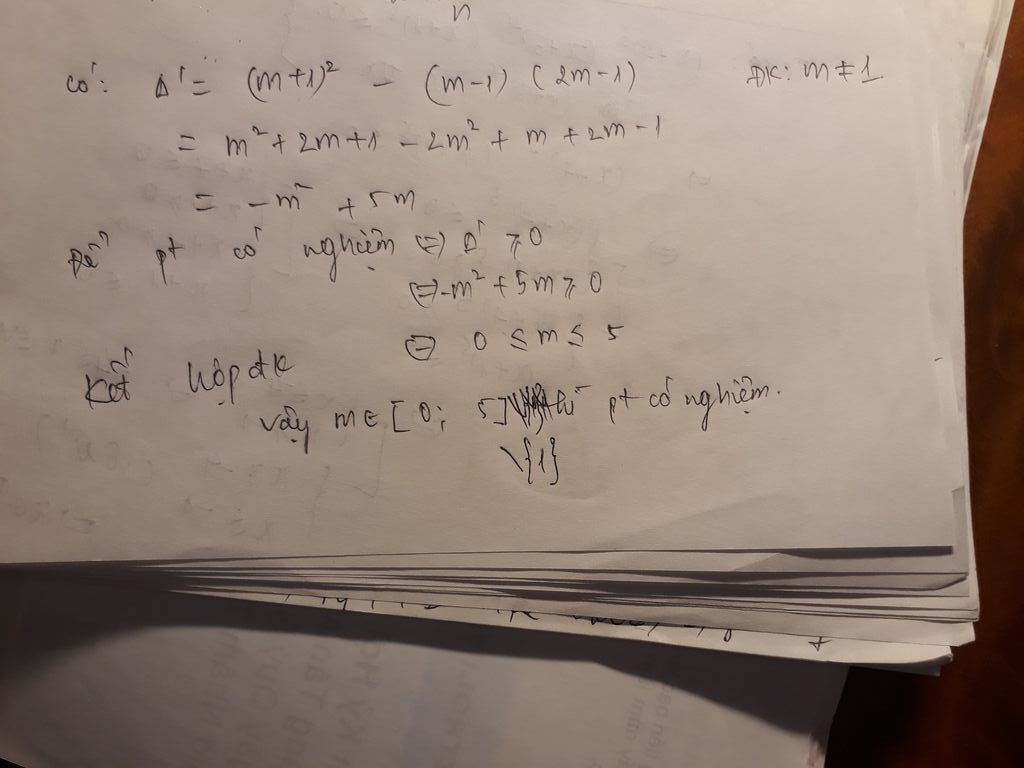 n
có: Δ' = (m+1)² - (m-1) (2m-1) ĐK: m ≠ 1
= m² + 2m + 1 - 2m² + m + 2m - 1
= -m² + 5m
Để pt có nghiệm ⇔ Δ' ⩾ 0
⇔ -m² + 5m ⩾ 0
⇔ 0 ≤ m ≤ 5
Kết hợp đk
vậy m ∈ [0; 5] thì pt có nghiệm.
\{1}